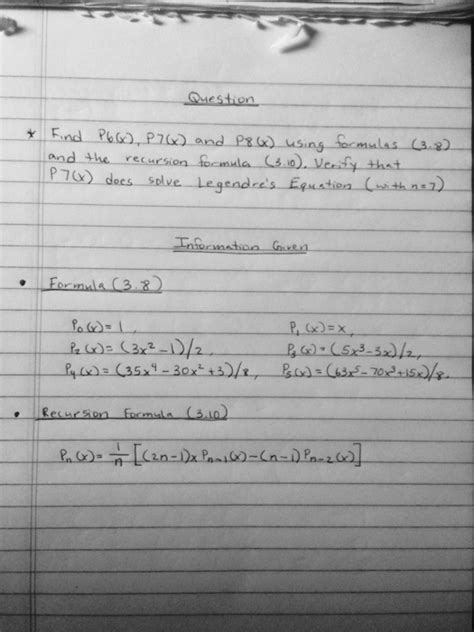 Question
* Find P6(x), P7(x) and P8(x) using formulas (3.8)
and the recursion formula (3.10). Verify that
P7(x) does solve Legendre's Equation (with n=7)
Information Given
• Formula (3.8)
P₀(x)=1, P₁(x)=x,
P₂(x)=(3x²-1)/2, P₃(x)=(5x³-3x)/2,
P₄(x)=(35x⁴-30x²+3)/8, P₅(x)=(63x⁵-70x³+15x)/8.
• Recursion Formula (3.10)
Pₙ(x)=1/n[(2n-1)xPₙ₋₁(x)-(n-1)Pₙ₋₂(x)]